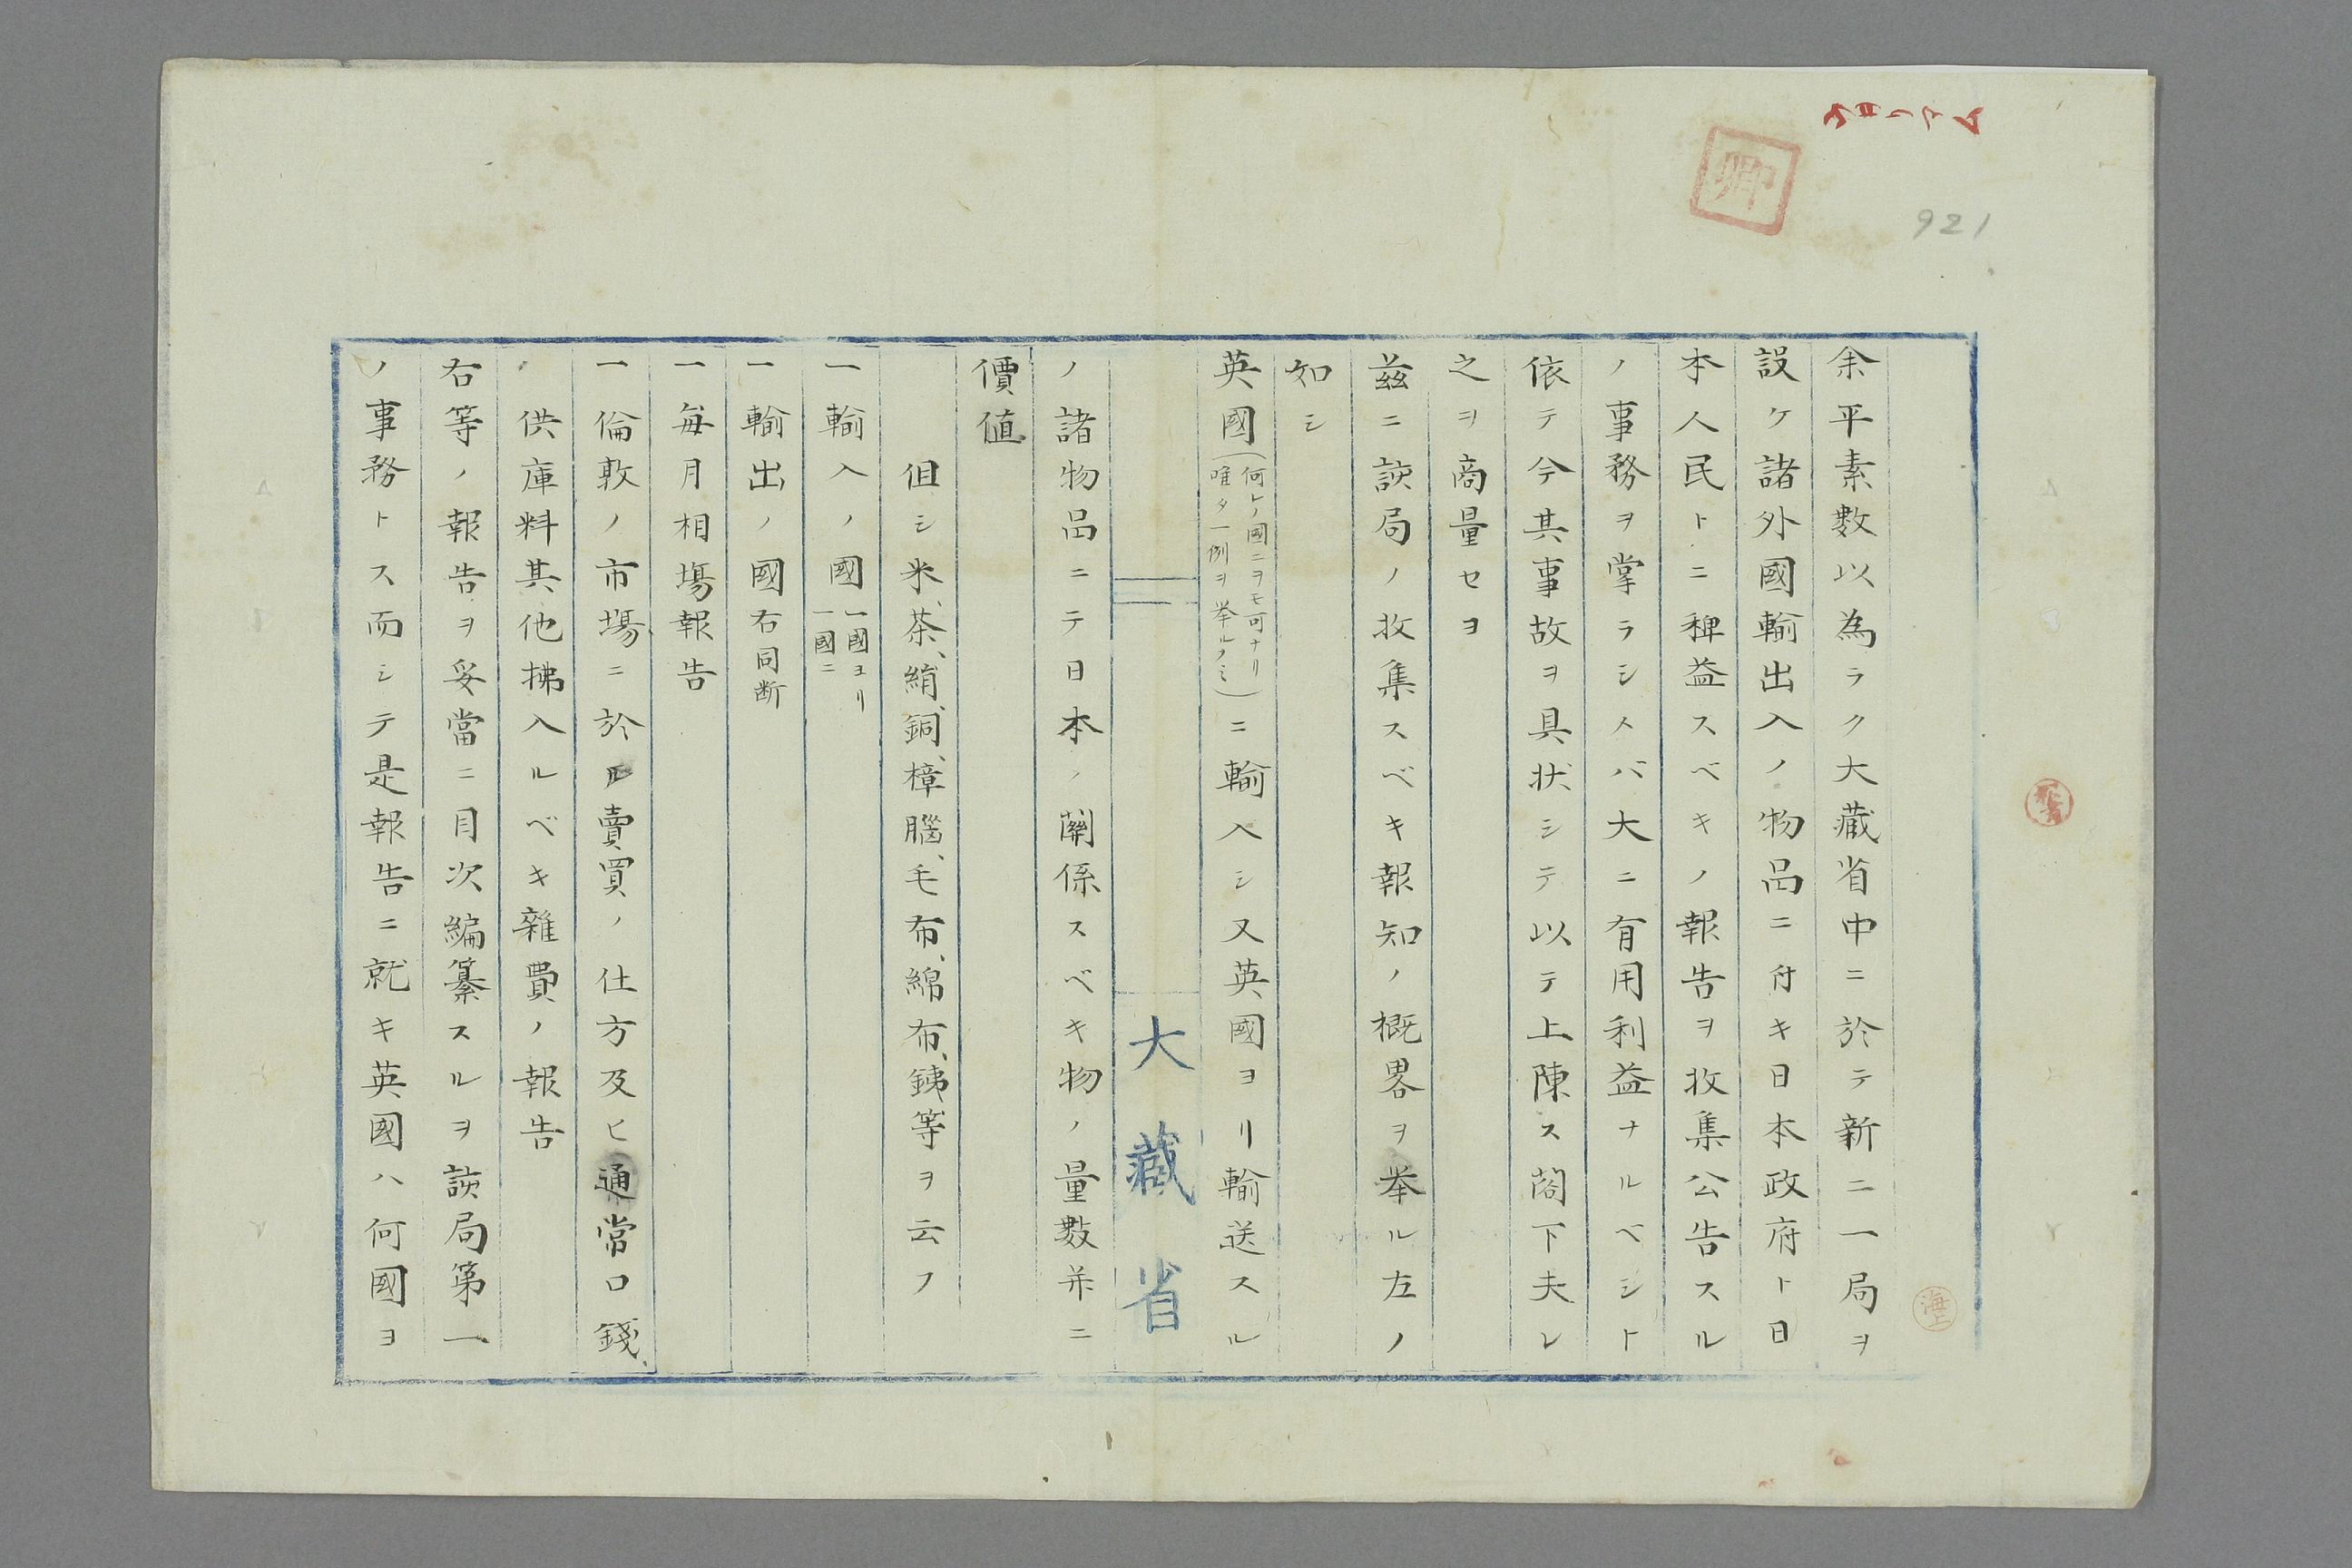 921
卿
余平素數以為ラク大藏省中ニ於テ新ニ一局ヲ
設ケ諸外國輸出入ノ物品ニ付キ日本政府ト日
本人民トニ稗益スベキノ報告ヲ收集公告スル
ノ事務ヲ掌ラシメバ大ニ有用利益ナルベシト
依テ今其事故ヲ具状シテ以テ上陳ス閣下夫レ
之ヲ商量セヨ
茲ニ該局ノ收集スベキ報知ノ概畧ヲ挙ル左ノ
如シ
英國(何レノ國ニヲモ可ナリ唯タ一例ヲ挙ルノミ)ニ輸入シ又英國ヨリ輸送スル
大藏省
ノ諸物品ニテ日本ノ關係スベキ物ノ量數并ニ
價値
但シ米、茶、絹、銅、樟腦、毛布、綿布、銕等ヲ云フ
一輸入ノ國一國ヨリ一國ニ
一輸出ノ國右同断
一毎月相塲報告
一倫敦ノ市塲ニ於ル賣買ノ仕方及ヒ通常口錢、
供庫料其他拂入ルベキ雜費ノ報告
右等ノ報告ヲ妥當ニ目次編纂スルヲ該局第一
ノ事務トス而シテ是報告ニ就キ英國ハ何國ヨ
海上